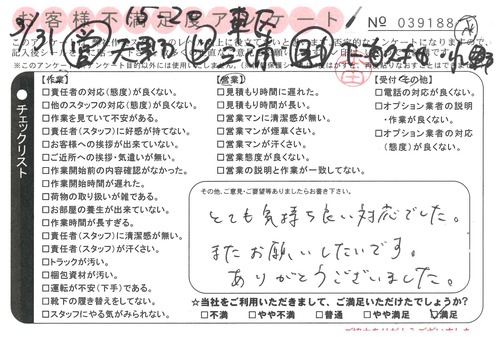 お客様不満足アンケート
№ 039188
チェックリスト
【作業】
□責任者の対応(態度)が良くない。
□他のスタッフの対応(態度)が良くない。
□作業を見ていて不安がある。
□責任者(スタッフ)に好感が持てない。
□お客様への挨拶が出来ていない。
□ご近所への挨拶・気遣いが無い。
□作業開始前の内容確認がなかった。
□作業開始時間が遅れた。
□荷物の取り扱いが雑である。
□お部屋の養生が出来ていない。
□作業時間が長すぎる。
□責任者(スタッフ)に清潔感が無い。
□責任者(スタッフ)が汗くさい。
□トラックが汚い。
□梱包資材が汚い。
□運転が不安(下手)である。
□靴下の履き替えをしてない。
□スタッフにやる気がみられない。
【営業】
□見積もり時間に遅れた。
□見積もり時間が長い。
□営業マンに清潔感が無い。
□営業マンが煙草くさい。
□営業マンが汗くさい。
□営業態度が良くない。
□営業の説明と作業が一致してない。
【受付・その他】
□電話の対応が良くない。
□オプション業者の説明
・作業が良くない。
□オプション業者の対応
(態度)が良くない。
その他、ご意見・ご要望等ありましたらお書き下さい。
とても気持ち良い対応でした。
またお願いしたいです。
ありがとうございました。
☆当社をご利用いただきまして、ご満足いただけたでしょうか?
□不満 □やや不満 □普通 □やや満足 □満足